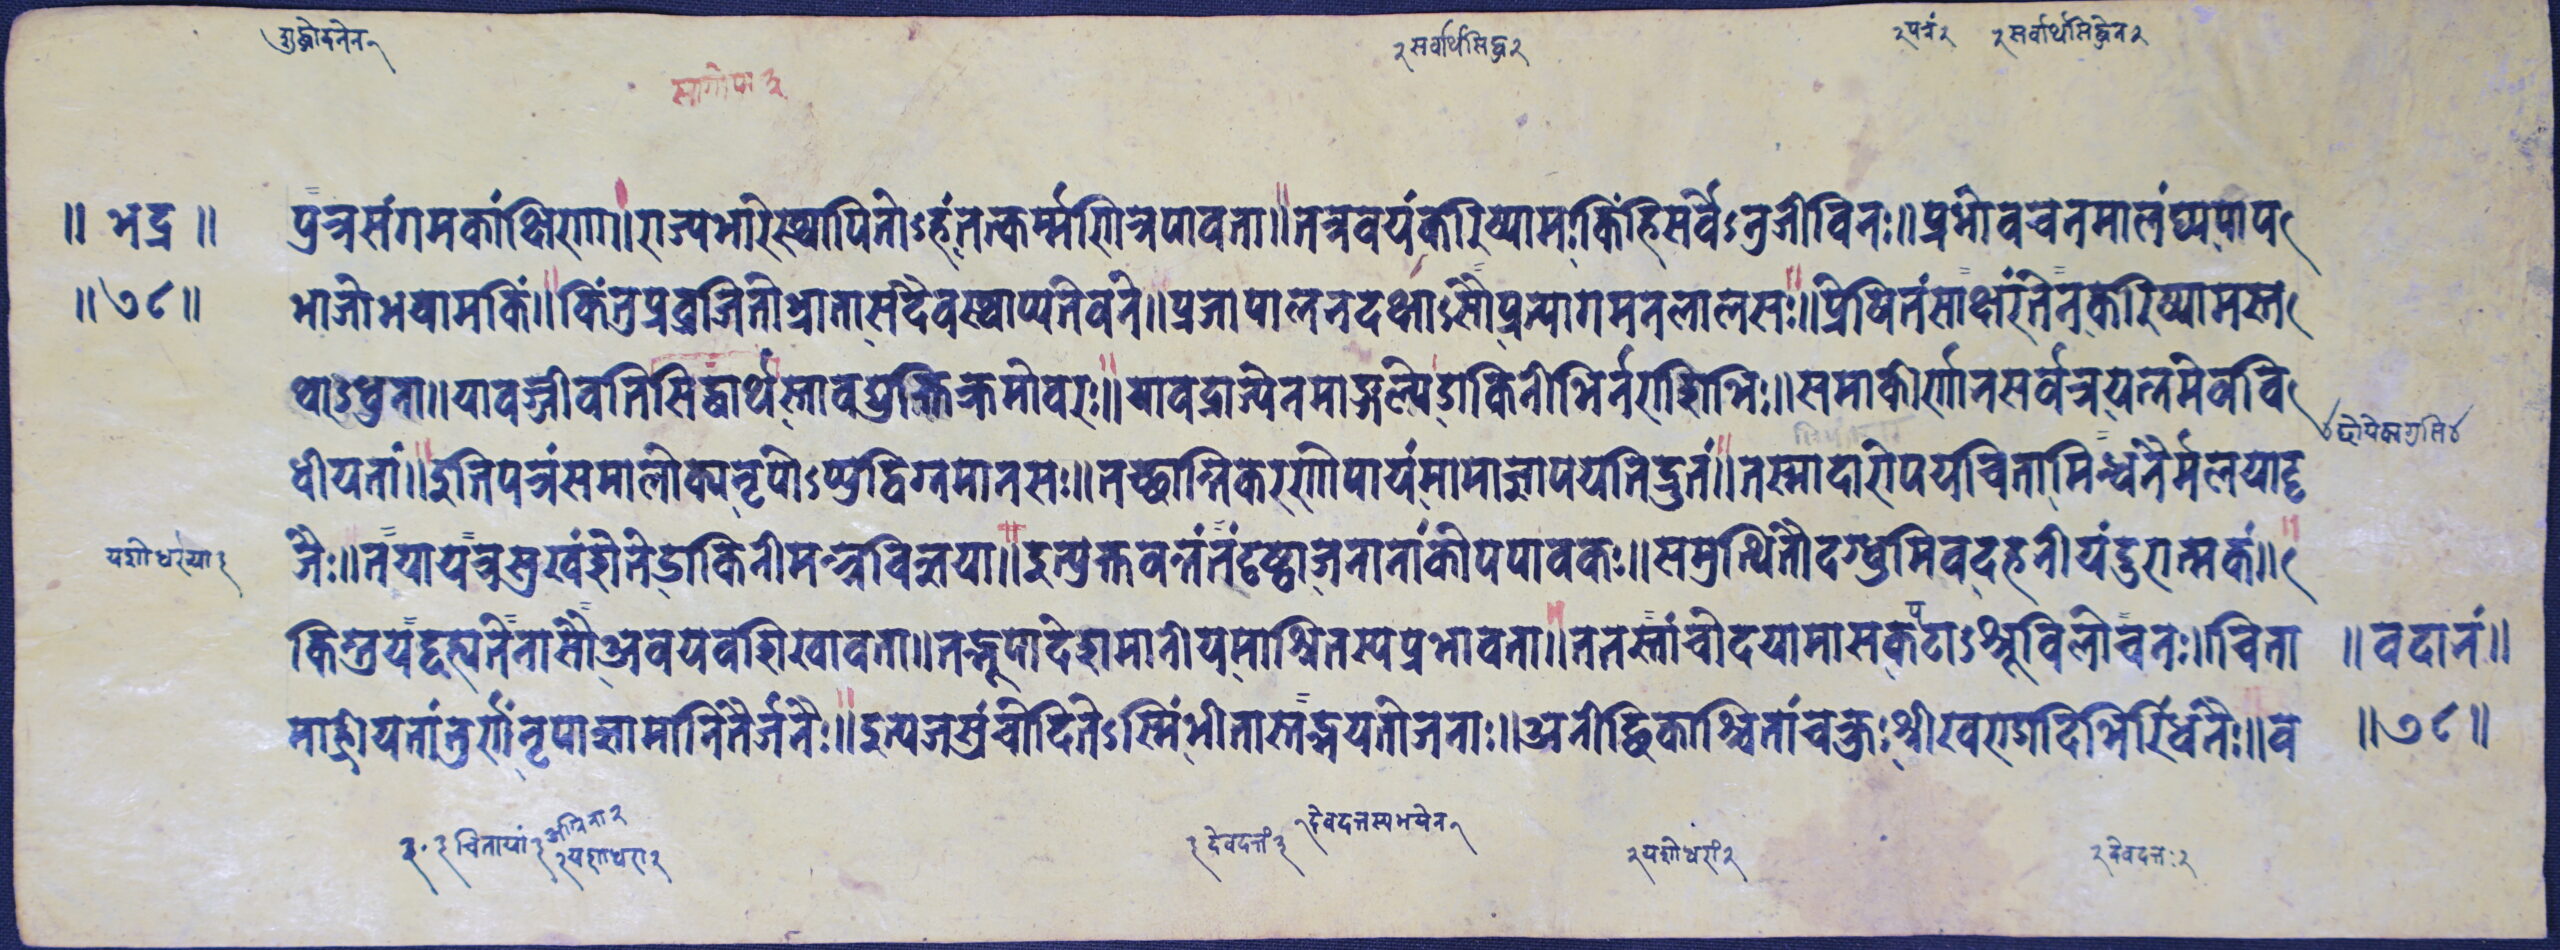 शुद्धोदनेन१
२सर्वार्थसिद्ध२
२पत्रं२
२सर्वार्थसिद्धेन२
॥ भद्र ॥
॥७८॥
पुत्रसंगमकांक्षिणा॥राज्यभारेस्थापितोऽहंतत्कर्म्मणित्रपावता॥तत्रवयंकरिष्यामःकिंहिसर्वेऽनुजीविनः॥प्रभोवचनमालंघ्यपाप
भाजोभवामकिं॥किंतुप्रव्रजितोभ्रातासदैवस्थाप्यतेवने॥प्रजापालनदक्षाऽसौप्रत्यागमनलालसः॥प्रेषितंसाक्षरंतेनकरिष्यामस्त
थाऽधुना॥यावज्जीवतिसिद्धार्थस्तावद्भुक्तिक्रमोवरः॥यावद्राज्येनमाङ्गल्येडाकिनीभिर्नराशिभिः॥समाकीर्णानसर्वत्रयत्नमेवावि
४दोपेकाग्रसि४
धीयतां॥इतिपत्रंसमालोक्यनृपोऽप्युद्विग्नमानसः॥तच्छान्तिकरणोपायंमामाज्ञापयतिद्रुतं॥तस्मादारोपयचितामिन्धनैर्मलयाद्रृ
यशोधरया३
जैः॥तयायत्रसुखंशेतेडाकिनीमन्त्रविज्ञया॥इत्युक्तवन्तंतंदृष्ट्वाजनानांकोपपावकः॥समुत्थितौदग्धुमिवदहनीयंदुरात्मकं॥
किन्तुयंदृह्यतेनासौअवयवशिखावता॥तन्नूपादेशमानीयमाश्रितस्यप्रभावता॥ततस्तांचोदयामासकपटाऽश्रूविलोचनः॥चिता
॥ वदानं॥
मारुहीयतांतुर्णंनृपाज्ञामानितैर्जनैः॥इत्यजस्रंचोदितेऽस्मिंभीतास्तद्भयतोजनाः॥अनीच्छिकाश्चितांचक्रुःश्रीखण्डादिभिरिंधनैः॥व
॥७८॥
३चितायां३
अग्निना२
२यशोधरा२
३देवदत्तं३
१देवदत्तस्यभयेन१
२यशोधरां२
२देवदत्तः२